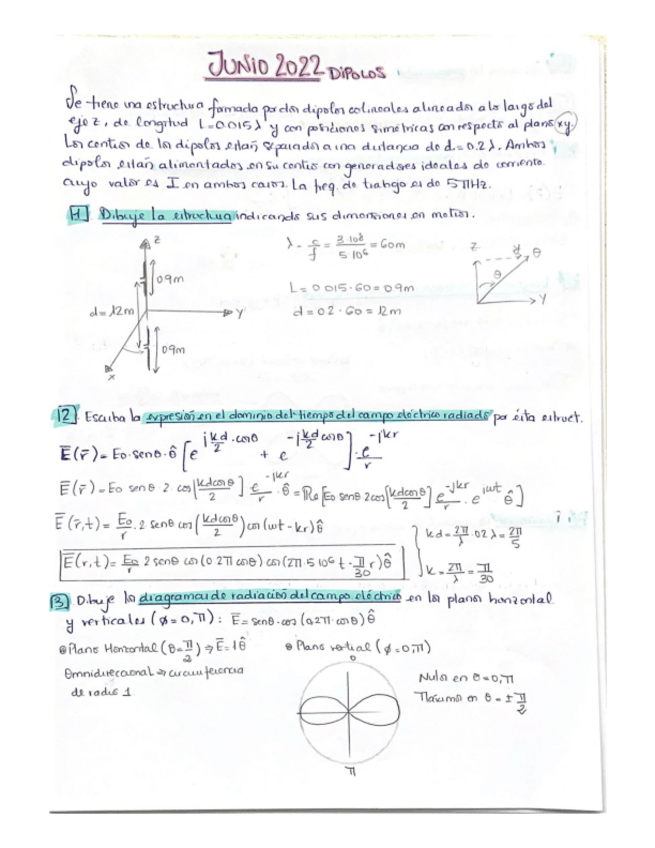 JUNIO 2022 DIPOLOS
Se tiene una estructura formada por dos dipolos colineales alineados a lo largo del
eje z, de longitud L=0.015λ y con posiciones simétricas con respecto al plano xy.
Los centros de los dipolos están separados a una distancia de d=0.2λ. Ambos
dipolos están alimentados en su centro con generadores ideales de corriente
cuyo valor es I en ambos casos. La freq. de trabajo es de 5MHz.
1. Dibuje la estructura indicando sus dimensiones en metros.
z
09m
d=12m
y
09m
x
λ = c/f = 3·10⁸ / 5·10⁶ = 60m
L = 0.015·60 = 0.9m
d = 0.2·60 = 12m
z
θ
θ
y
2. Escriba la expresión en el dominio del tiempo del campo eléctrico radiado por esta estruct.
E̅(r̅) = E₀·senθ·θ̂ [e^(j kd/2 ·cosθ) + e^(-j kd/2 cosθ)]·e^(-jkr)/r
E̅(r̅) = E₀ senθ·2 cos[kdcosθ/2] e^(-jkr)/r·θ̂ = Re[E₀ senθ 2cos(kdcosθ/2) e^(-jkr)/r·e^(jωt) θ̂]
E̅(r̅,t) = E₀/r·2 senθ cos(kdcosθ/2) cos(ωt-kr)θ̂
kd = 2π/λ·0.2λ = 2π/5
E̅(r,t) = E₀/r 2 senθ cos(0.2π cosθ) cos(2π·5·10⁶t - π/30 r)θ̂
k = 2π/λ = π/30
3. Dibuje los diagramas de radiación del campo eléctrico en los planos horizontal
y verticales (ø=0,π): E̅ = senθ·cos(0.2π·cosθ)θ̂
Plano Horizontal (θ=π/2) ⇒ E̅=1θ̂
Omnidireccional ⇒ circunferencia
de radio 1
Plano vertical (ø=0,π)
0
π
Nulo en θ=0,π
Máximo en θ=±π/2